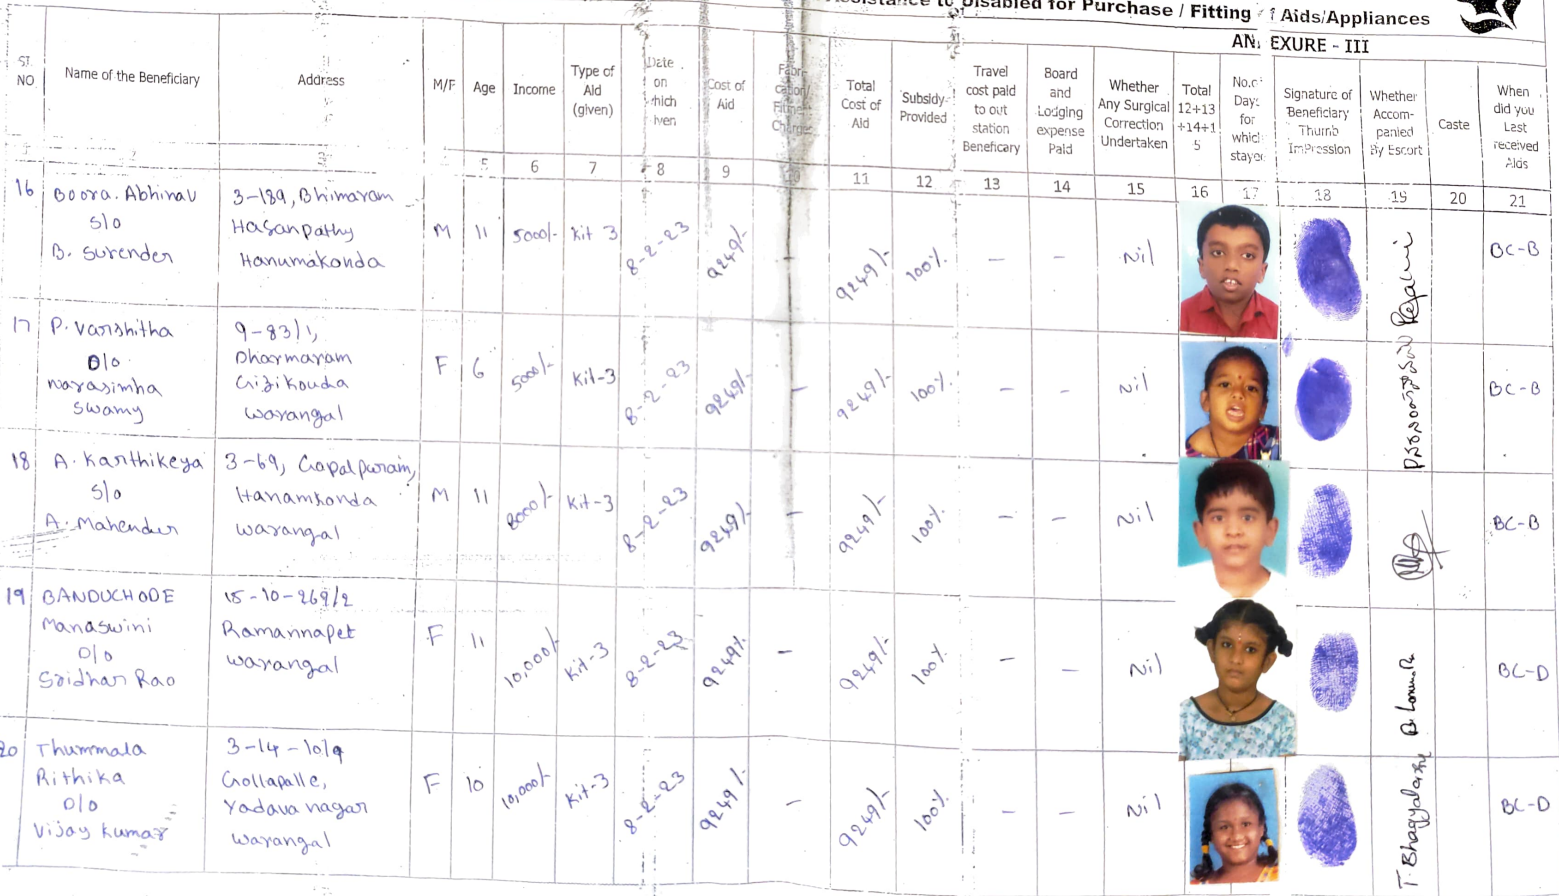 to Disabled for Purchase / Fitting Aids/Appliances
EXURE - III
NO
Name of the Beneficiary
Address
M/F
Age
Income
Type of
Aid
(given)
Date
on
Cost of
Aid
Total
Cost of
Aid
Subsidy
Provided
Travel
cost paid
to out
station
Beneficary
Board
and
Lodging
expense
Paid
Whether
Any Surgical
Correction
Undertaken
Total
12+13
+14+1
5
for
Signature of
Beneficiary
Thumb
ImPression
Whether
Accom-
panied
By Escort
Caste
When
did you
Last
received
Aids
5 6 7 8 9 11 12 13 14 15 16 17 18 19 20 21
16 Boora. Abhinav
S/o
B. Surender
3-189, Bhimaram
Hasanpathy
Hanumakonda
M 11 5000/- Kit 3 8-2-23 9249/- - 9249/- 100% - - Nil BC-B
17 P. Varshitha
D/o
Narasimha
Swamy
9-83/1,
Dharmaram
Warangal
F 6 5000/- Kit-3 8-2-23 9249/- - 9249/- 100% - - Nil BC-B
18 A. Karthikeya
S/o
A. Mahender
3-69, Gopalpuram,
Hanamkonda
Warangal
M 11 8000/- Kit-3 8-2-23 9249/- - 9249/- 100% - - Nil BC-B
19 BANDUCHODE
Manaswini
D/o
Sridhar Rao
15-10-269/2
Ramannapet
Warangal
F 11 10,000/- Kit-3 8-2-23 9249/- - 9249/- 100% - - Nil BC-D
20 Thummala
Rithika
D/o
Vijay Kumar
3-14-10/9
Gollapalle,
Yadava nagar
Warangal
F 10 10,000/- Kit-3 8-2-23 9249/- - 9249/- 100% - - Nil T. Bhagyalaxmi BC-D